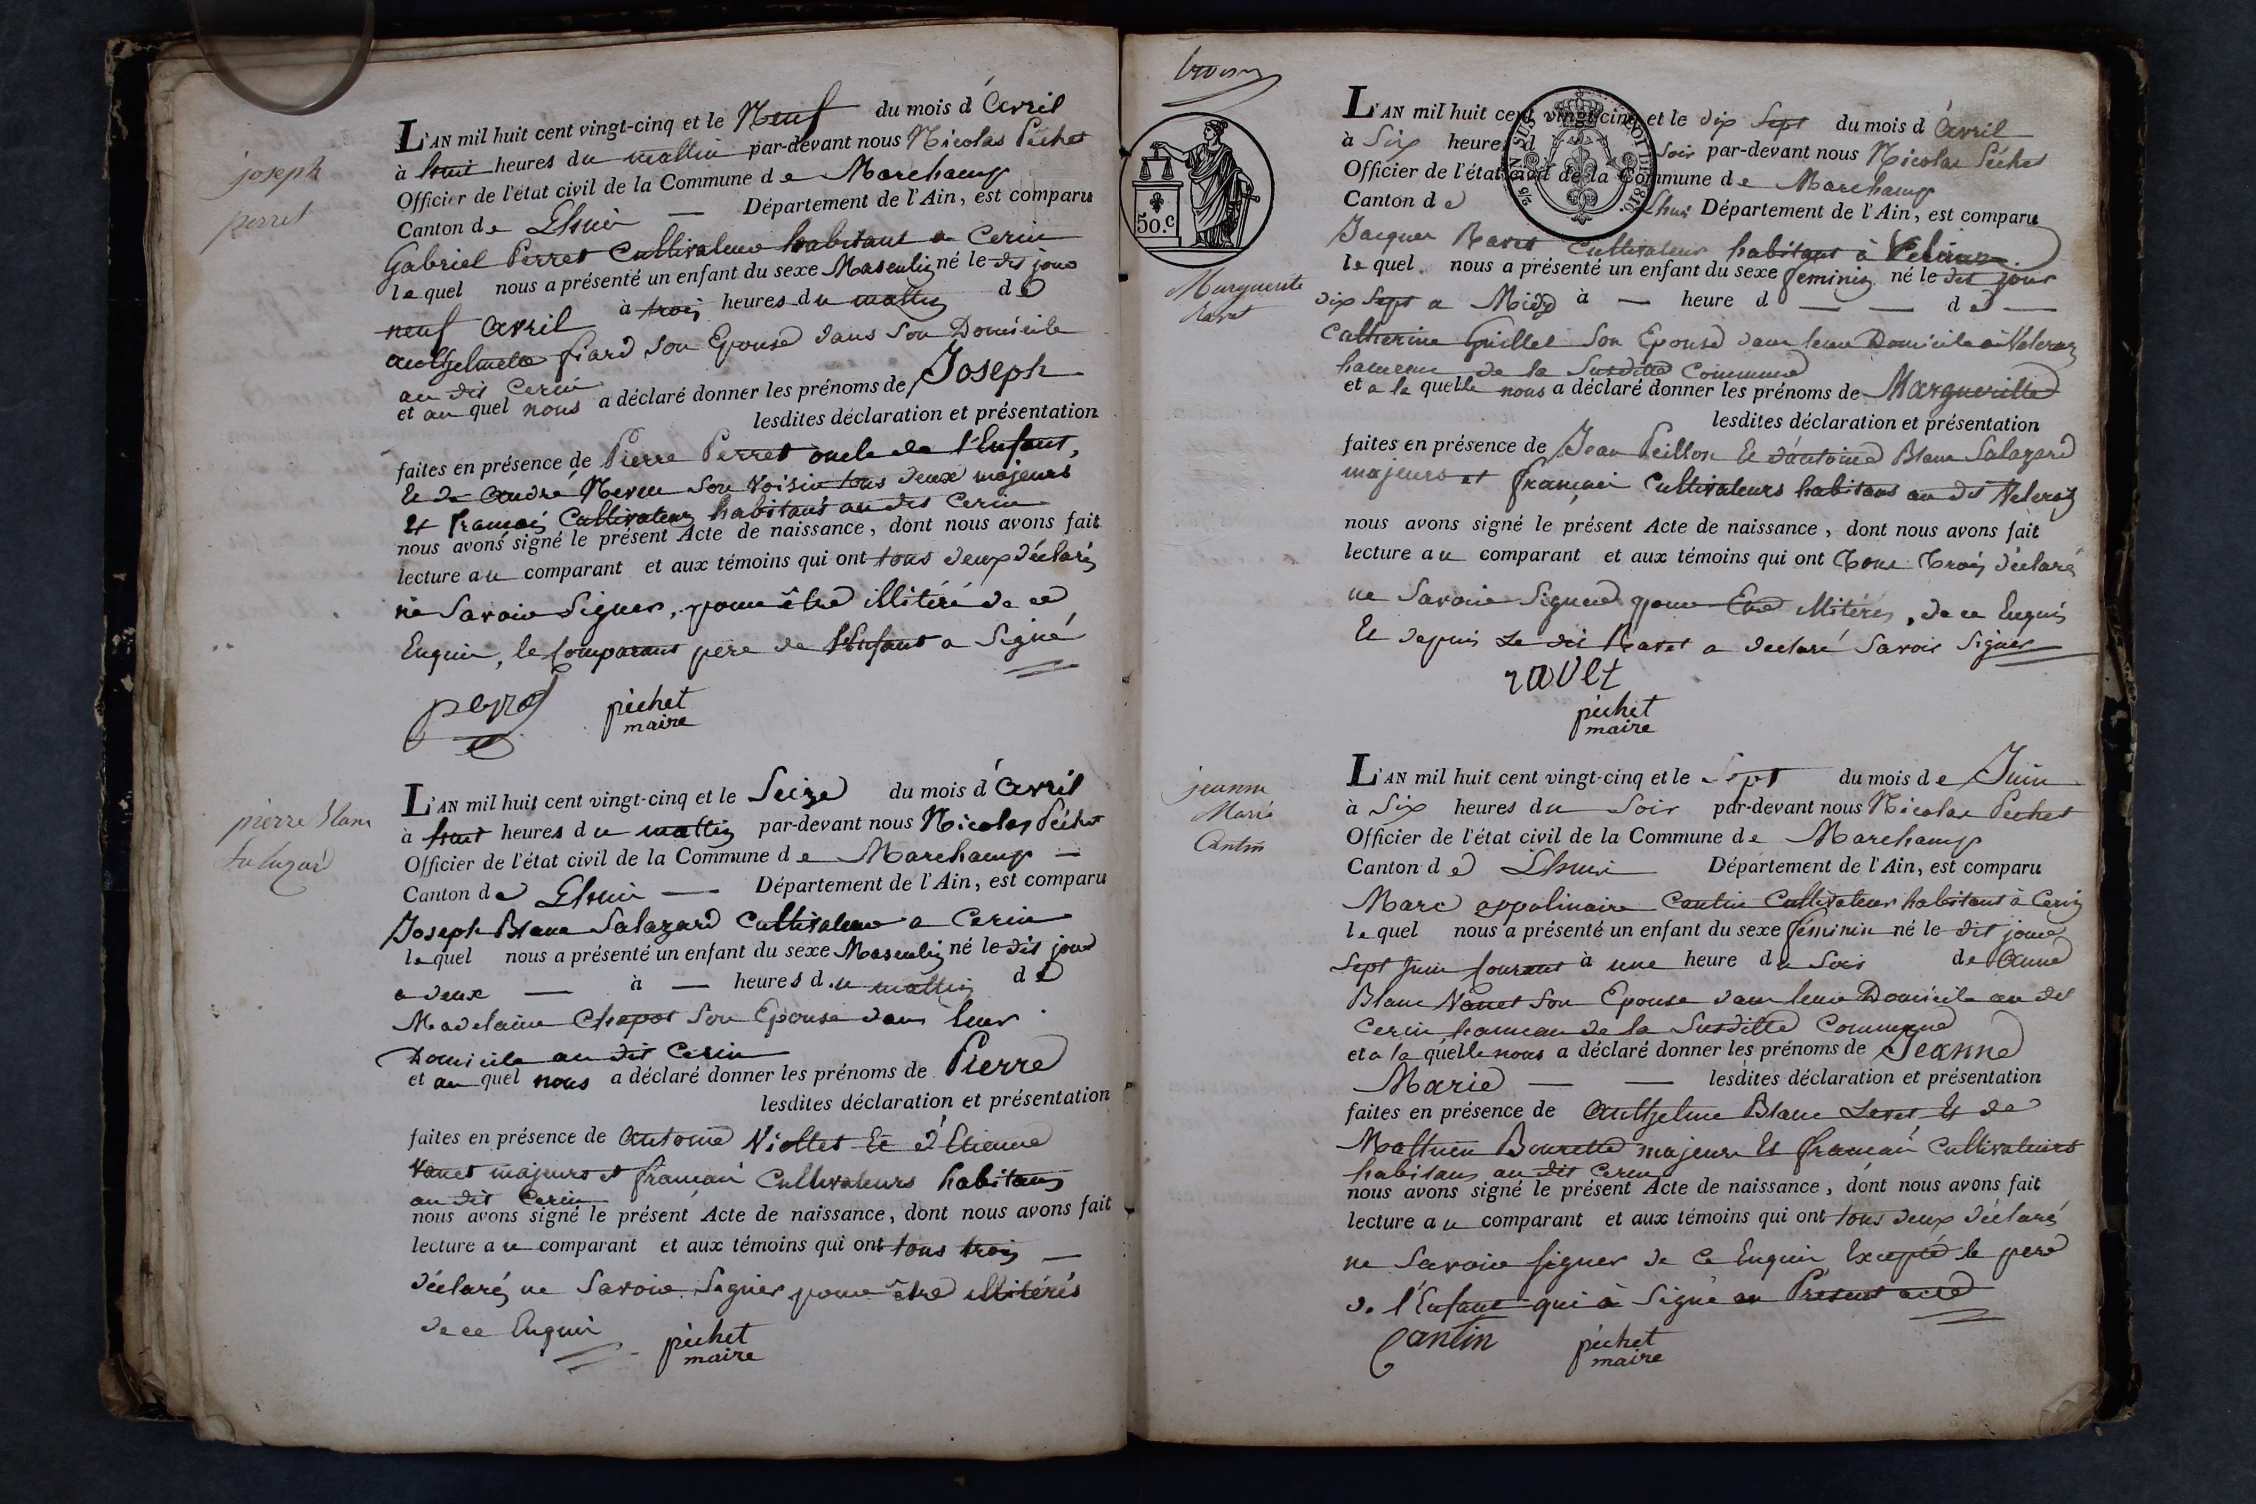 joseph
perret
L'AN mil huit cent vingt-cinq et le Neuf du mois d'Avril
à huit heures du mattin par-devant nous Nicolas Péchet
Officier de l'état civil de la Commune de Marchamp
Canton de Lhuis — Département de l'Ain, est comparu
Gabriel Perret Cultivateur habitant a Cerin
lequel nous a présenté un enfant du sexe Masculin né le dit jour
neuf avril à trois heures du mattin de
anthelmette fiard son Epouse dans son Domicile
au dit Cerin
et au quel nous a déclaré donner les prénoms de Joseph
lesdites déclaration et présentation
faites en présence de Pierre Perret oncle de l'Enfant,
Et de André Neveu son voisin tous deux majeurs
et francais Cultivateurs habitans au dit Cerin
nous avons signé le présent Acte de naissance, dont nous avons fait
lecture au comparant et aux témoins qui ont tous deux déclarés
ne Savoir Signer, pour être illitéré de ce
Enquis, le Comparant pere de l'Enfant a Signé
péchet
maire
pierre blanc
Saluzard
L'AN mil huit cent vingt-cinq et le Seize du mois d'Avril
à huit heures du mattin par-devant nous Nicolas Péchet
Officier de l'état civil de la Commune de Marchamp —
Canton de Lhuis — Département de l'Ain, est comparu
Joseph Blanc Salazard Cultivateur a Cerin
lequel nous a présenté un enfant du sexe Masculin né le dit jour
a deux — à — heures du mattin de
Madelaine Chapot Son Epouse dans leur
Domicile au dit Cerin
et au quel nous a déclaré donner les prénoms de Pierre
lesdites déclaration et présentation
faites en présence de Antoine Viollet Et d'Etienne
Vanet majeurs et francais Cultivateurs habitans
au dit Cerin
nous avons signé le présent Acte de naissance, dont nous avons fait
lecture au comparant et aux témoins qui ont tous trois —
déclarés ne Savoir Signer pour être illitérés
de ce Enquis
péchet
maire
50.c
Marguerite
Ravet
L'AN mil huit cent vingt-cinq et le dix Sept du mois d'Avril
à Six heures d Soir par-devant nous Nicolas Péchet
Officier de l'état civil de la Commune de Marchamp
Canton de Lhuis Département de l'Ain, est comparu
Jacques Ravet Cultivateur habitant à Veleraz
lequel nous a présenté un enfant du sexe feminin né le dit jour
dix Sept a Midy à — heure d — — de —
Catherine Guillet Son Epouse dans leur Domicile à Veleraz
hameau de la Susditte Commune
et a la quelle nous a déclaré donner les prénoms de Margueritte
lesdites déclaration et présentation
faites en présence de Jean Peillon Et d'antoine Blanc Salazard
majeurs et francais Cultivateurs habitans au dit Veleraz
nous avons signé le présent Acte de naissance, dont nous avons fait
lecture au comparant et aux témoins qui ont Tous Trois déclaré
ne Savoir Signer pour Etre illitérés, de ce Enquis
Et depuis Le dit Ravet a declaré Savoir Signer
ravet
péchet
maire
jeanne
Marie
Cantin
L'AN mil huit cent vingt-cinq et le Sept du mois de Juin
à Six heures du Soir par-devant nous Nicolas Péchet
Officier de l'état civil de la Commune de Marchamp
Canton de Lhuis Département de l'Ain, est comparu
Marc appolinaire Cantin Cultivateur habitant à Cerin
lequel nous a présenté un enfant du sexe féminin né le dit jour
Sept Juin Courant à une heure du Soir de Anne
Blanc Vanet Son Epouse dans leur Domicile au dit
Cerin hameau de la Susditte Commune
et a la quelle nous a déclaré donner les prénoms de Jeanne
Marie — — lesdites déclaration et présentation
faites en présence de Anthelme Blanc Levet Et de
Mathieu Bourette majeurs Et francais Cultivateurs
habitans au dit Cerin
nous avons signé le présent Acte de naissance, dont nous avons fait
lecture au comparant et aux témoins qui ont tous deux déclarés
ne Savoir signer de Ce Enquis Excepté le pere
de l'Enfant qui à Signé au Présent acte
Cantin
péchet
maire